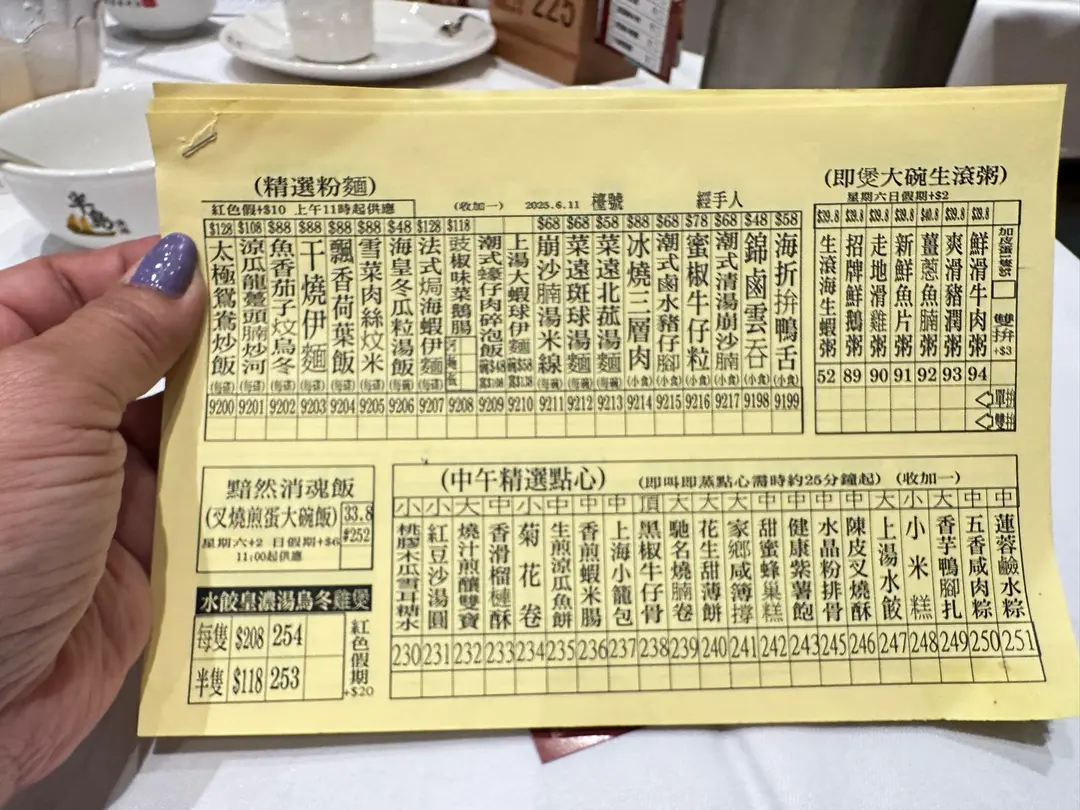 225
半島
(精選粉麵)
紅色假+$10 上午11時起供應
(收加一) 2025.6.11 檯號 經手人
$128 太極鴛鴦炒飯 (每碟) 9200
$108 涼瓜龍躉頭腩炒河 (每碟) 9201
$88 魚香茄子炆烏冬 (每碟) 9202
$88 干燒伊麵 (每碟) 9203
$88 飄香荷葉飯 (每碟) 9204
$88 雪菜肉絲炆米 (每碟) 9205
$48 海皇冬瓜粒湯飯 (每碗) 9206
$128 法式焗海蝦伊麵 (每碟) 9207
$118 豉椒味菜鵝腸 9208
潮式蠔仔肉碎泡飯 碗$48 窩$108 9209
上湯大蝦球伊麵 碗$58 窩$138 9210
$68 崩沙腩湯米線 (每碗) 9211
$68 菜遠斑球湯麵 (每碗) 9212
$58 菜遠北菰湯麵 (每碗) 9213
$88 冰燒三層肉 (小食) 9214
$68 潮式鹵水豬仔腳 (小食) 9215
$78 蜜椒牛仔粒 (小食) 9216
$68 潮式清湯崩沙腩 (小食) 9217
$48 錦鹵雲吞 (小食) 9198
$58 海折拚鴨舌 (小食) 9199
(即煲大碗生滾粥)
星期六日假期+$2
$39.8 生滾海生蝦粥 52
$39.8 招牌鮮鵝粥 89
$39.8 走地滑雞粥 90
$39.8 新鮮魚片粥 91
$40.8 薑蔥魚腩粥 92
$39.8 爽滑豬潤粥 93
$39.8 鮮滑牛肉粥 94
雙拚+$3
單拚
雙拚
黯然消魂飯
(叉燒煎蛋大碗飯) 33.8
星期六+2 日假期+$6 #252
11:00起供應
水餃皇濃湯烏冬雞煲
每隻 $208 254
半隻 $118 253
紅色假期+$20
(中午精選點心) (即叫即蒸點心需時約25分鐘起) (收加一)
小 桃膠木瓜雪耳糖水 230
小 紅豆沙湯圓 231
大 燒汁煎釀雙寶 232
中 香滑榴槤酥 233
小 菊花卷 234
中 生煎涼瓜魚餅 235
中 香煎蝦米腸 236
中 上海小籠包 237
頂 黑椒牛仔骨 238
大 馳名燒腩卷 239
大 花生甜薄餅 240
大 家鄉咸簿撐 241
中 甜蜜蜂巢糕 242
中 健康紫薯飽 243
中 水晶粉排骨 245
中 陳皮叉燒酥 246
大 上湯水餃 247
小 小米糕 248
大 香芋鴨腳扎 249
中 五香咸肉粽 250
中 蓮蓉鹼水粽 251